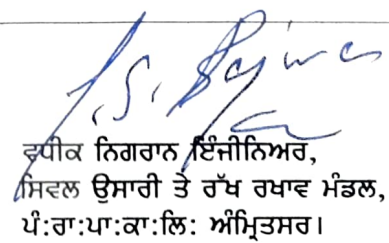 ਵਧੀਕ ਨਿਗਰਾਨ ਇੰਜੀਨਿਅਰ,
ਸਿਵਲ ਉਸਾਰੀ ਤੇ ਰੱਖ ਰਖਾਵ ਮੰਡਲ,
ਪੰ:ਰਾ:ਪਾ:ਕਾ:ਲਿ: ਅੰਮ੍ਰਿਤਸਰ।